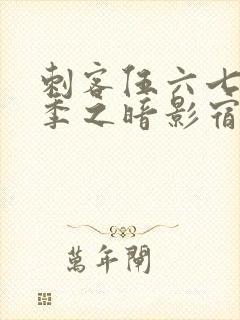 刺客伍六七
季之暗影宿
萬年閘